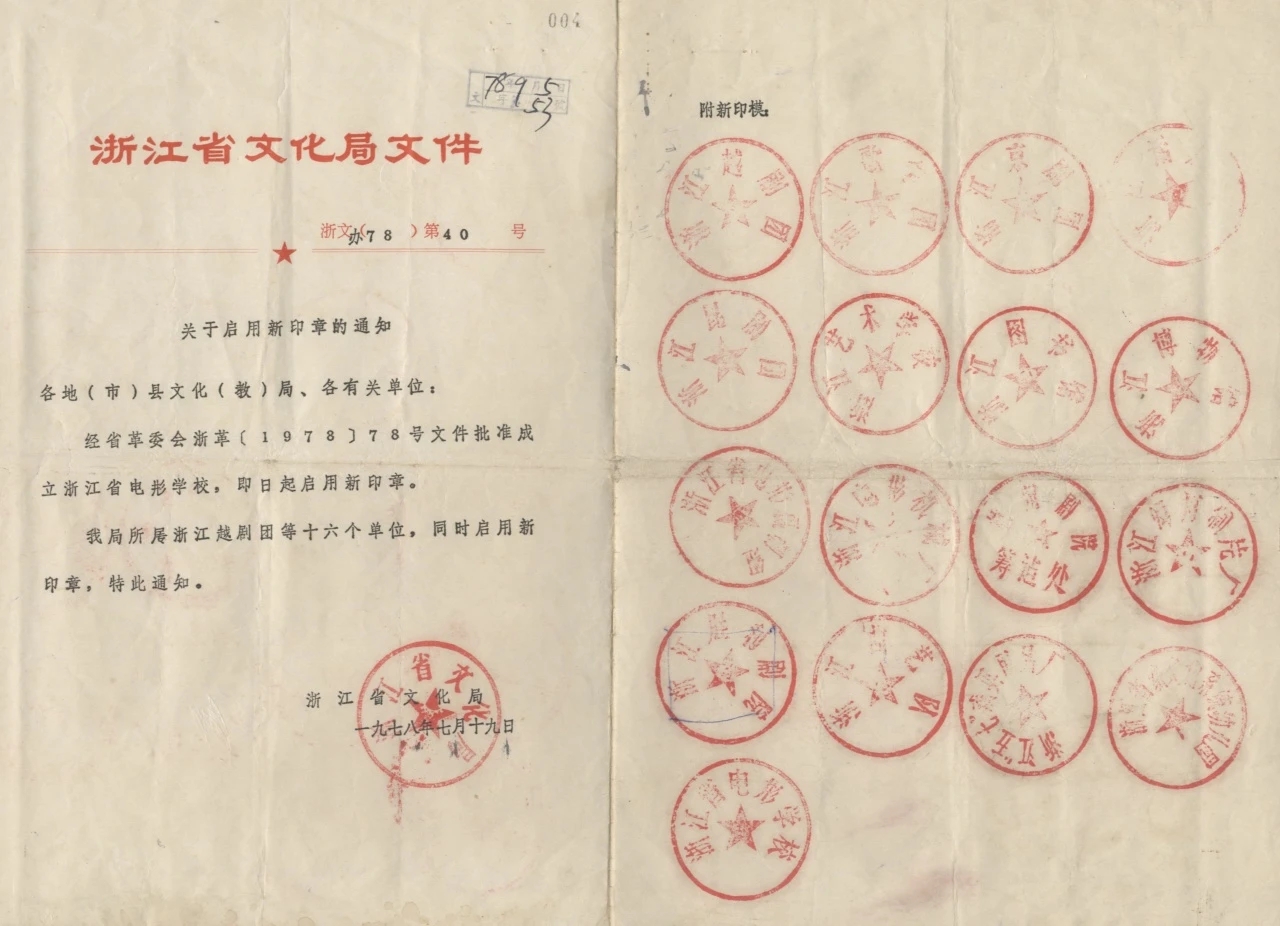 004
789 5
53
浙江省文化局文件
浙文(办78)第40号
关于启用新印章的通知
各地(市)县文化(教)局、各有关单位:
经省革委会浙革〔1978〕78号文件批准成
立浙江省电影学校,即日起启用新印章。
我局所属浙江越剧团等十六个单位,同时启用新
印章,特此通知。
浙江省文化局
一九七八年七月十九日
附新印模:
浙江越剧团
浙江京剧团
浙江昆剧团
浙江艺术学校
浙江图书馆
浙江博物馆
浙江电影机械厂
筹建处
浙江省电影学校